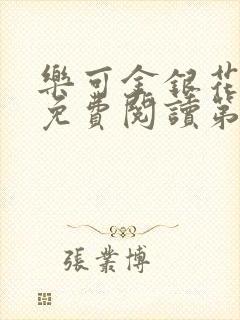 樂可金銀花
免費閱讀第
張業博